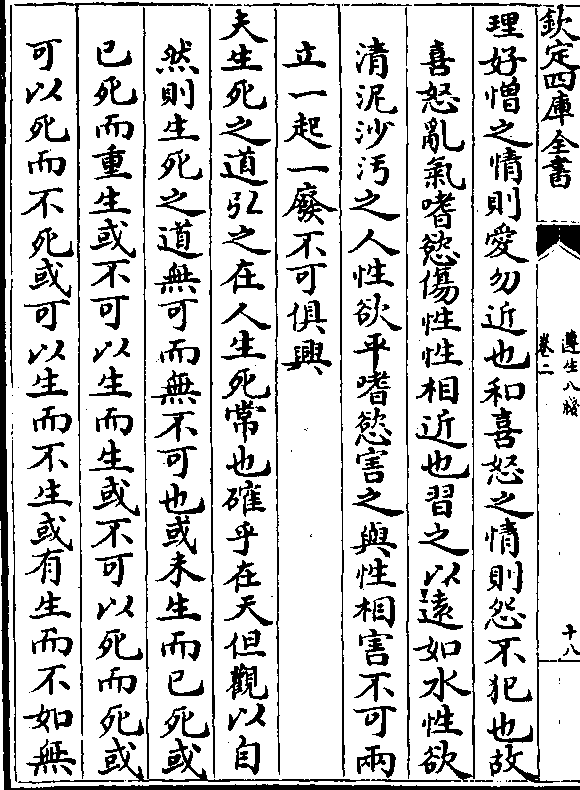 欽定四庫全書
遵生八牋
卷二
十八
理好憎之情則愛勿近也和喜怒之情則怨不犯也故
喜怒亂氣嗜慾傷性性相近也習之以遠如水性欲
清泥沙汚之人性欲平嗜慾害之與性相害不可兩
立一起一廢不可俱興
夫生死之道引之在人生死常也確乎在天但觀以自
然則生死之道無可而無不可也或未生而已死或
已死而重生或不可以生而生或不可以死而死或
可以死而不死或可以生而不生或有生而不如無